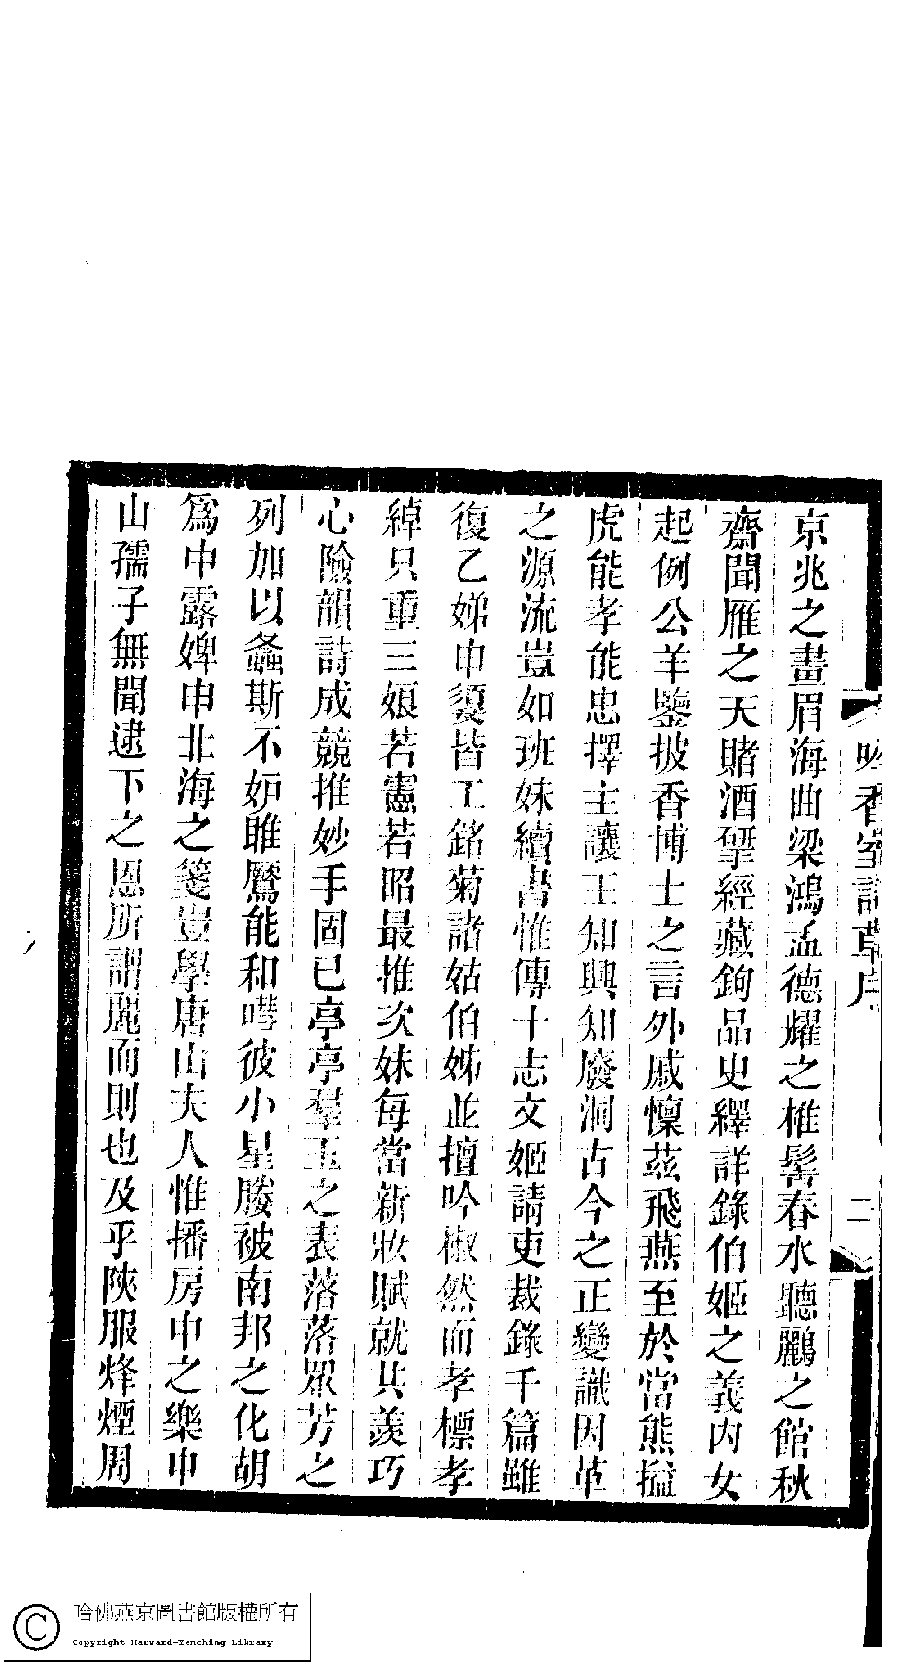 吟香室詩草序
二
京兆之畫眉海曲梁鴻孟德耀之椎髻春水聽鸝之館秋
齋聞雁之天賭酒揅經藏鉤品史繹詳錄伯姬之義內女
起例公羊鑒披香博士之言外戚懍茲飛燕至於當熊搤
虎能孝能忠擇主讓王知興知廢洞古今之正變識因革
之源流豈如班妹續書惟傳十志文姬請吏裁錄千篇雖
復乙娣申嬃皆工銘菊諸姑伯姊並擅吟椒然而孝標孝
綽只重三娘若憲若昭最推次妹每當新妝賦就共羨巧
心險韻詩成競推妙手固已亭亭羣玉之表落落眾芳之
列加以螽斯不妒雎鷽能和嘒彼小星媵被南邦之化胡
爲中露婢申北海之箋豈學唐山夫人惟播房中之樂中
山孺子無聞逮下之恩所謂麗而則也及乎陝服烽煙周
哈佛燕京圖書館版權所有
Copyright Harvard-Yenching Library